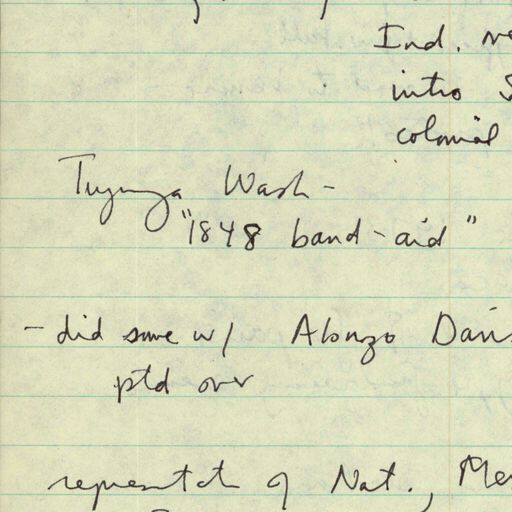 Ind.
intro
colonial
Tujunga Wash -
"1848 band-aid"
- did some w/ Alonzo Davis
ptd over
representatn of Nat.,